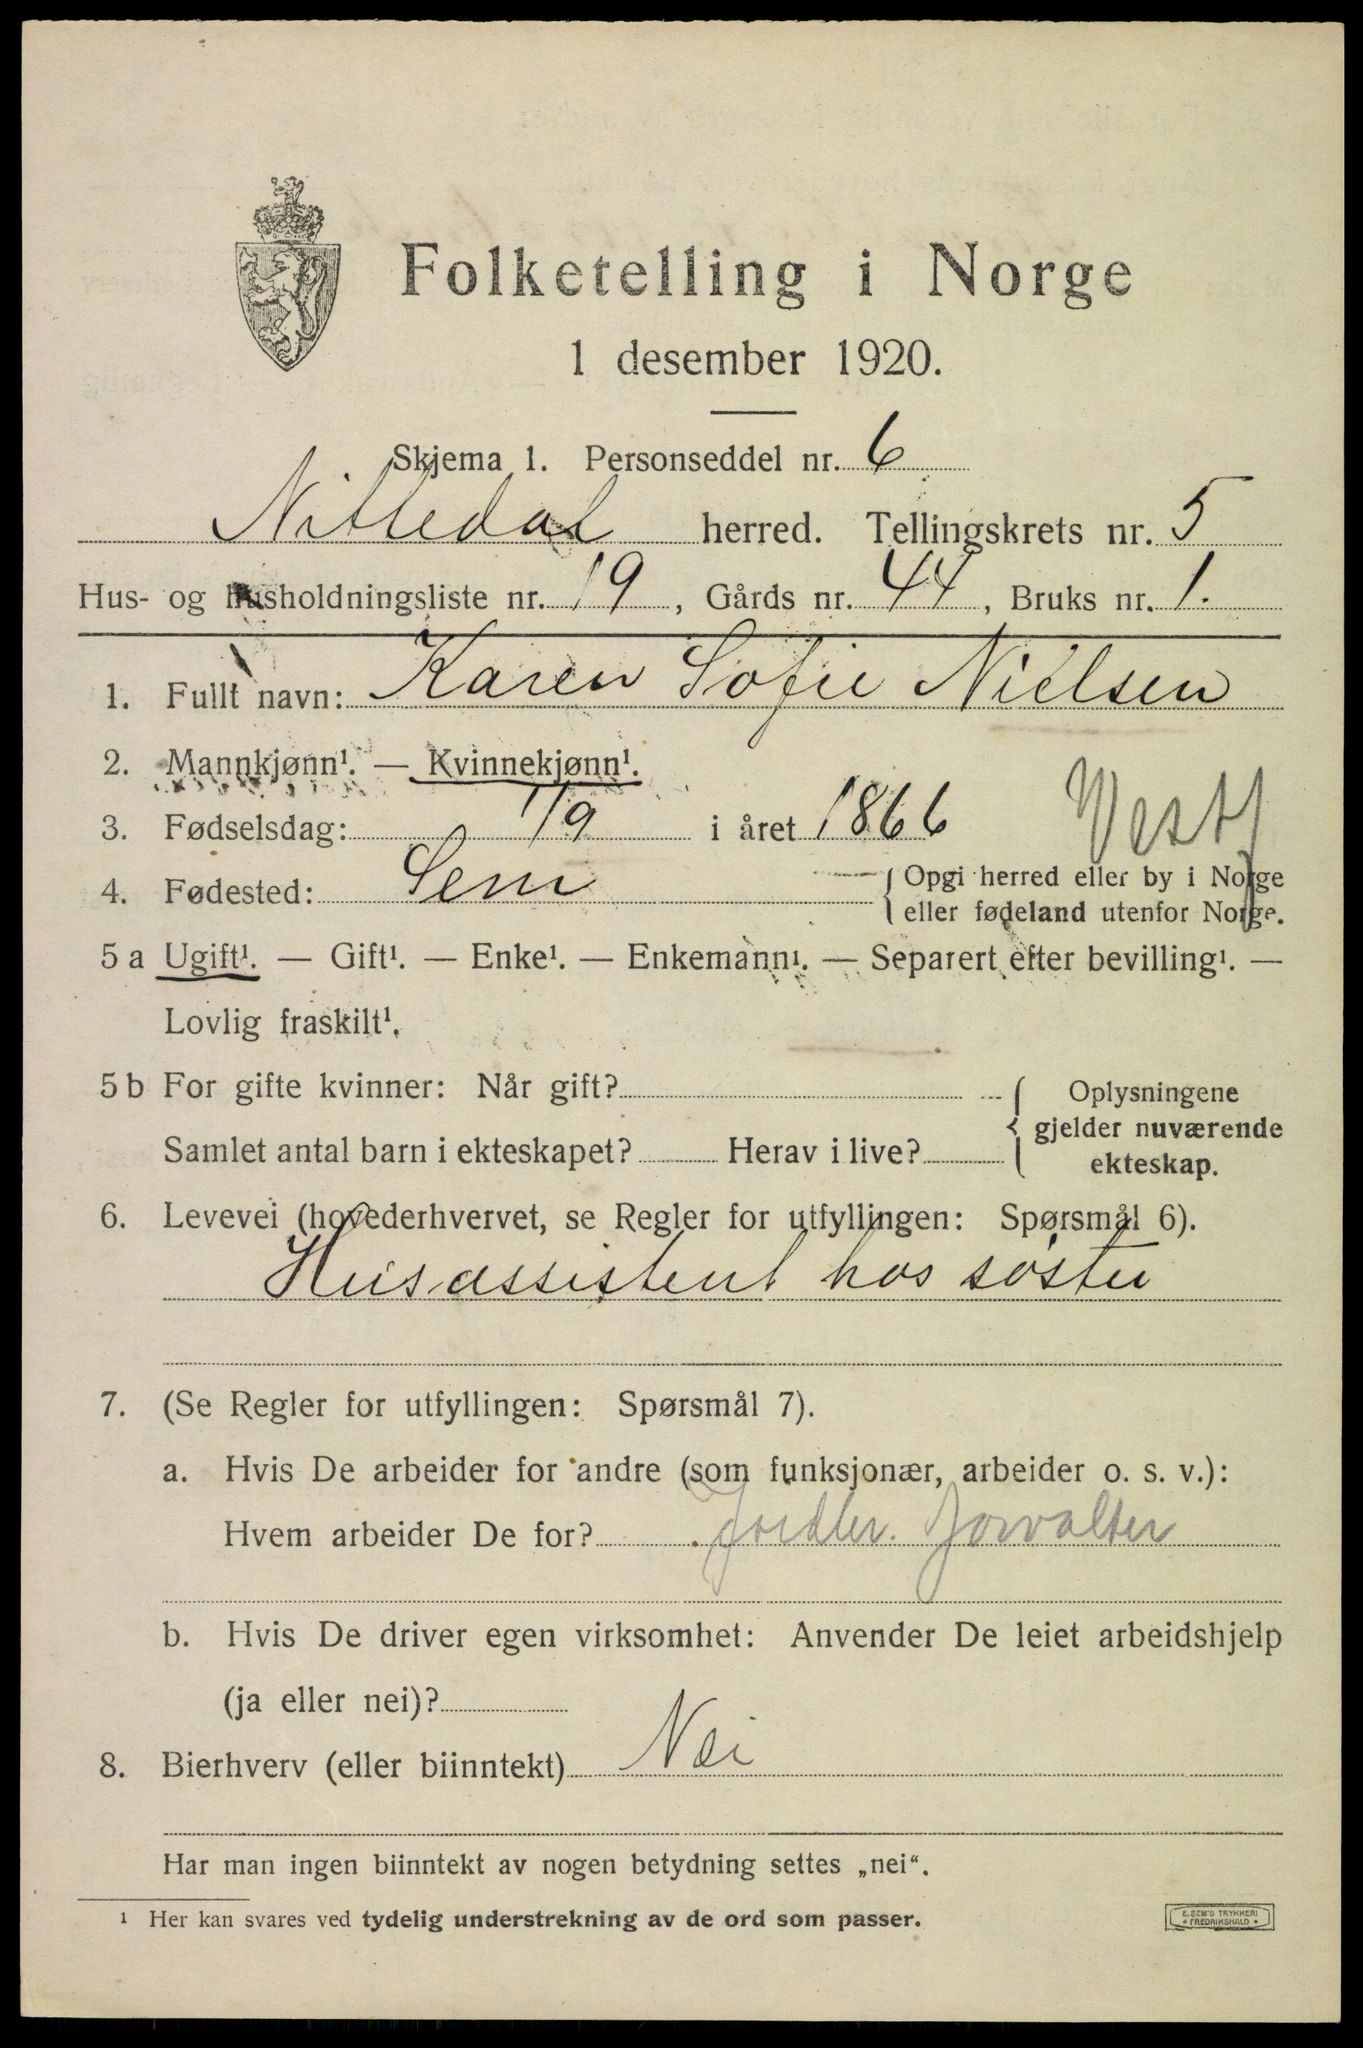 Folketelling i Norge
1 desember 1920.
Skjema 1. Personseddel nr. 6
Nittedal herred. Tellingskrets nr. 5
Hus- og husholdningsliste nr. 19, Gårds nr. 44, Bruks nr. 1.
1. Fullt navn: Karen Sofie Nielsen
2. Mannkjønn¹. — Kvinnekjønn¹.
3. Fødselsdag: 1/9 i året 1866 Vestf
4. Fødested: Sem { Opgi herred eller by i Norge
eller fødeland utenfor Norge.
5 a Ugift¹. — Gift¹. — Enke¹. — Enkemann¹. — Separert efter bevilling¹. —
Lovlig fraskilt¹.
5 b For gifte kvinner: Når gift?
Samlet antal barn i ekteskapet? Herav i live?
{ Oplysningene
gjelder nuværende
ekteskap.
6. Levevei (hovederhvervet, se Regler for utfyllingen: Spørsmål 6).
Husassistent hos søster
7. (Se Regler for utfyllingen: Spørsmål 7).
a. Hvis De arbeider for andre (som funksjonær, arbeider o. s. v.):
Hvem arbeider De for?
b. Hvis De driver egen virksomhet: Anvender De leiet arbeidshjelp
(ja eller nei)?
8. Bierhverv (eller biinntekt) Nei
Har man ingen biinntekt av nogen betydning settes „nei“.
¹ Her kan svares ved tydelig understrekning av de ord som passer.
E. SEM'S TRYKKERI
FREDRIKSHALD